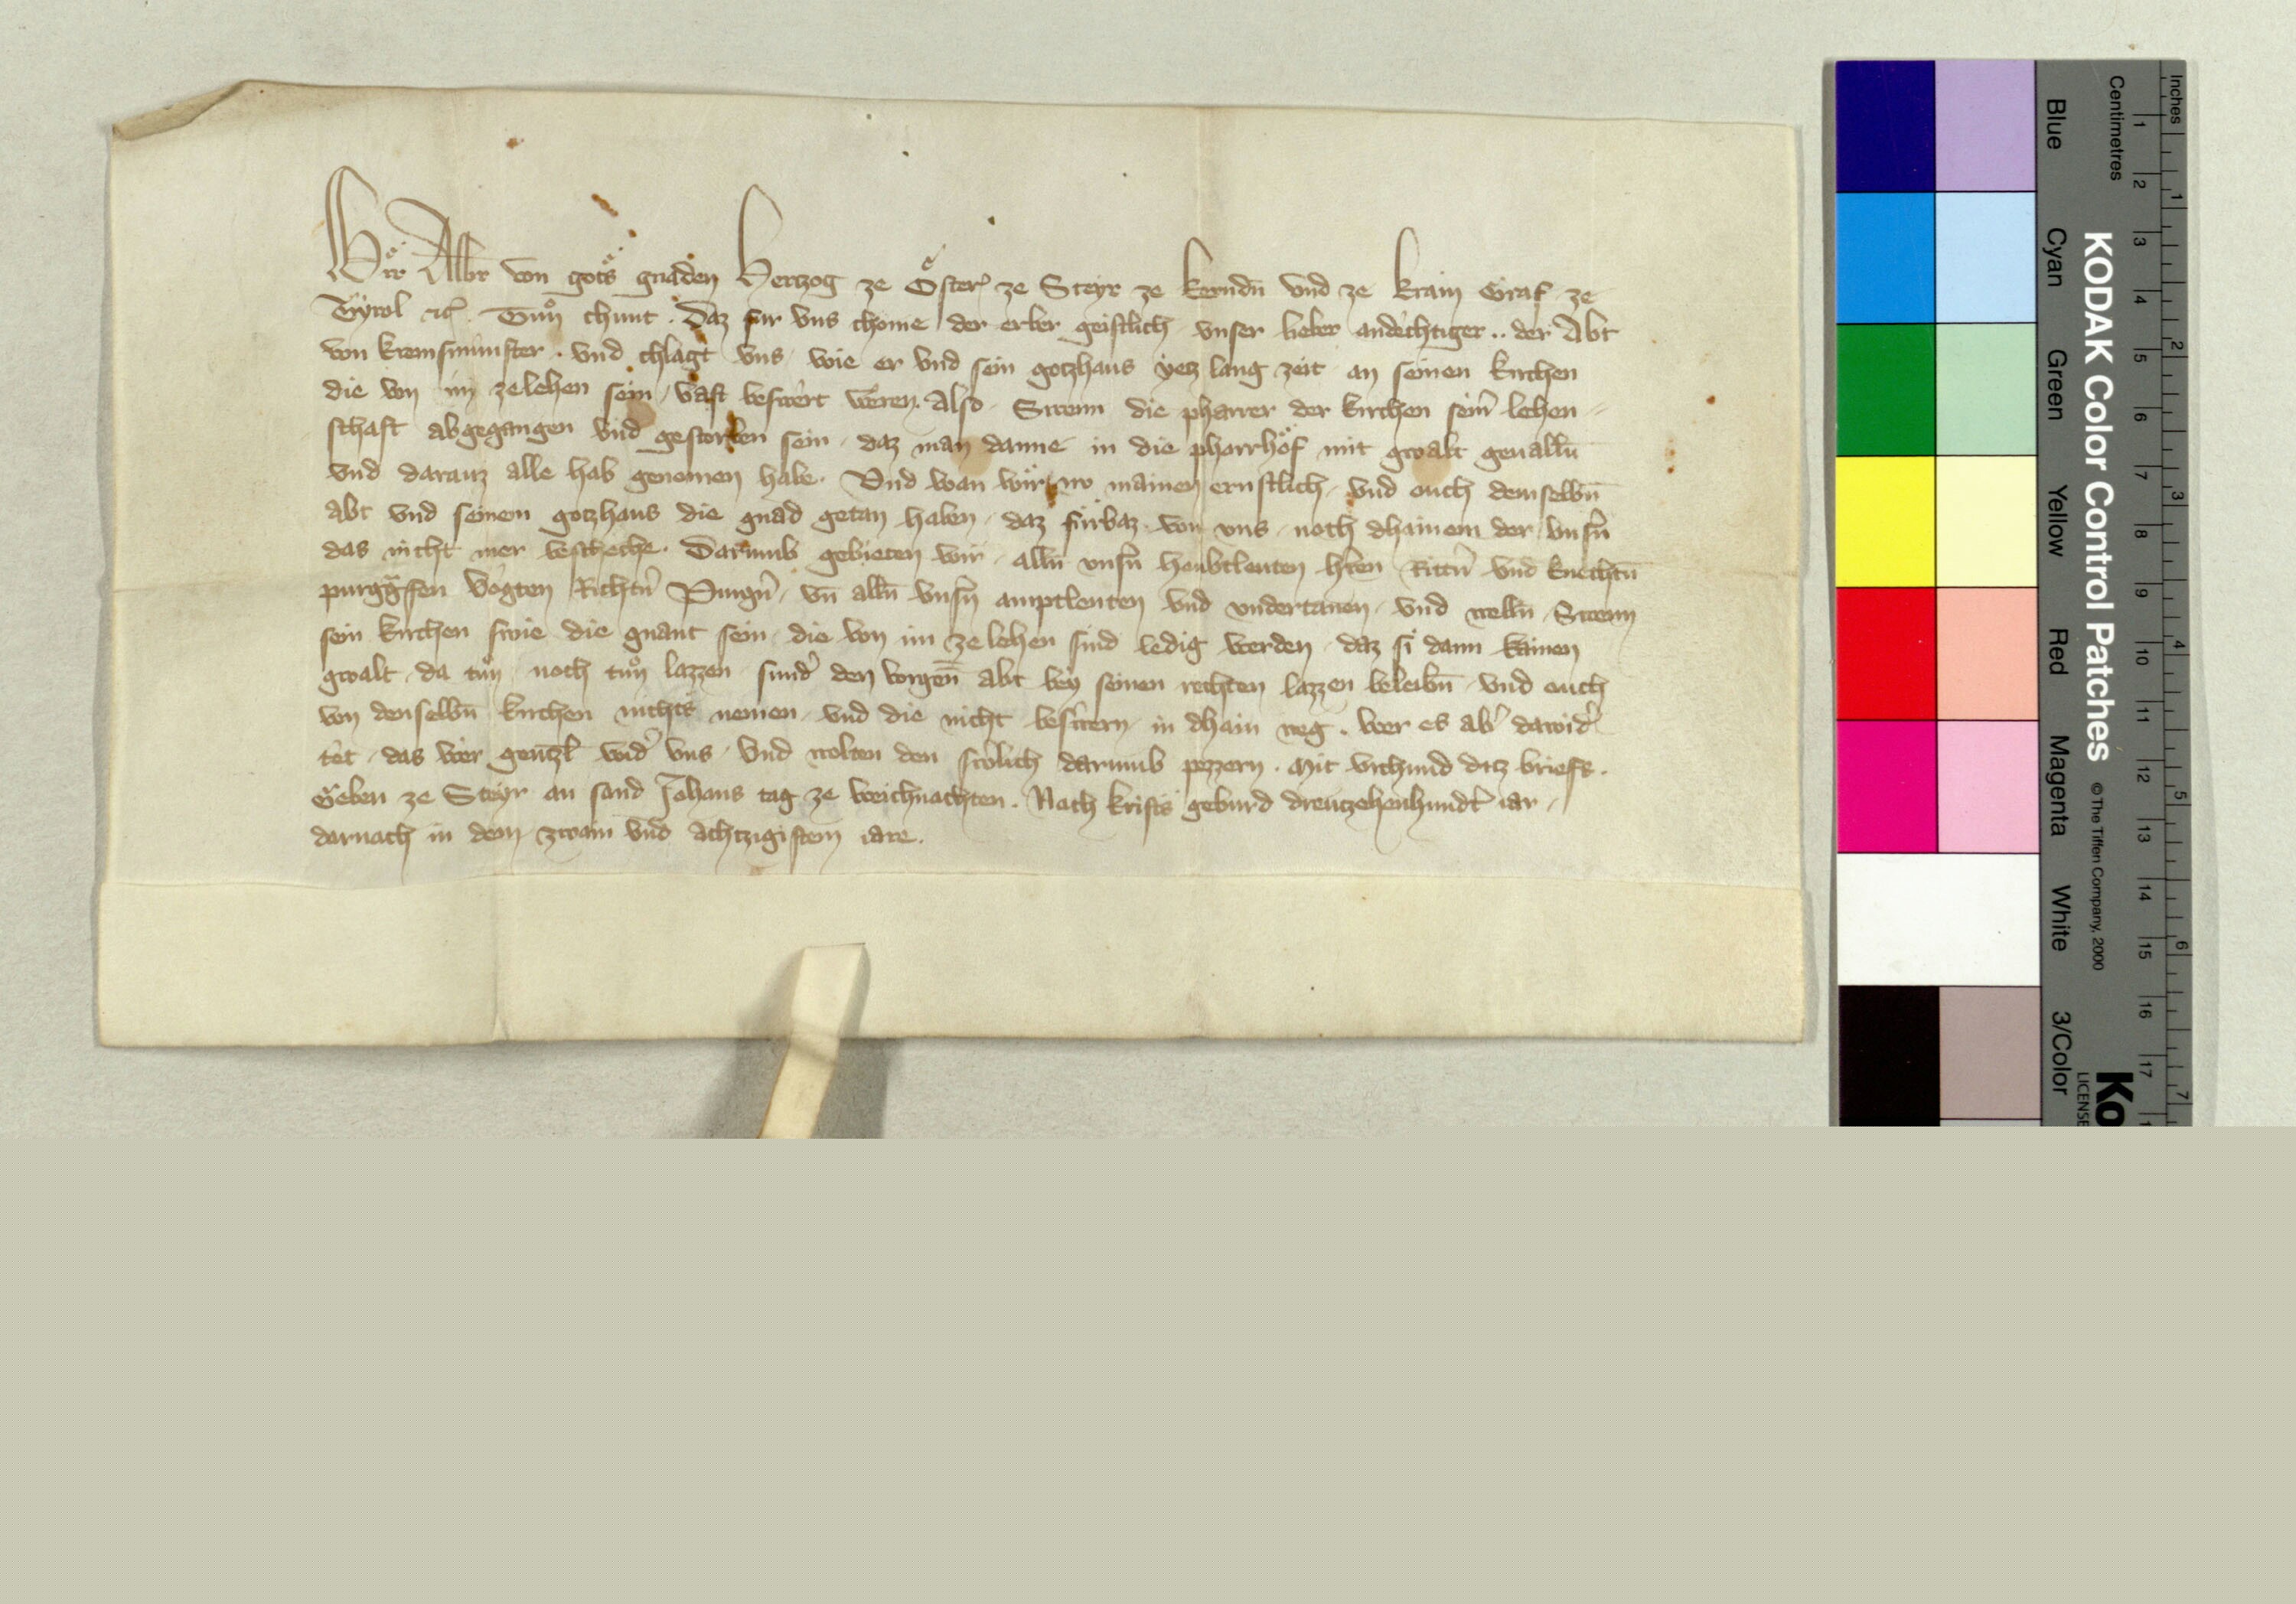 Wir Albr̄ von gots gnaden Hertzog ze Ősterꝛ ze Steyr ze kerndn̄ vnd ze krain Graf ze
Tyrol ꝛc̃. Tůn chunt. Daz fur vns chome der erber geistlich vnser lieber andechtiger .. der Abt
von kremsmunster. vnd chlagt vns, wie er vnd sein gotzhaus yetz lang zeit an seinen kirchen
die von im zelehen sein, vast beswert weren. Also. Swenn die pharrer der kirchen seinr̄ lehen-
schaft abgegangen vnd gestorben sein, daz man danne in die pharrhöf mit gwalt geuallñ
vnd darauz alle hab genomen habe. Vnd wan wir no mainen ernstlich, vnd ouch demselbn̄
abt vnd seinem gotzhaus die gnad getan haben, daz fürbaz von vns, noch dhainem der vnsn̄
das nicht mer bescheche. Darumb gebieten wir, alln̄ vnsn̄ houbtleuten hr̄en Rittn̄ vnd knechtn̄
purggr̄fen vögten Richtn̄ Purgn̄, vn̄ alln̄ vnsn̄ amptleuten vnd vndertanen, vnd welln̄, Swenn
sein kirchen swie die gnant sein, die von im ze lehen sind ledig werden, daz si dann kainen
gwalt, da tůn, noch tůn lazzen, sundr̄ den vorgen̄ abt bey seinen rechten lazzen beleibn̄, vnd ouch
von denselbn̄ kirchen nichts nemen, vnd die nicht beswern, in dhain weg. wer es abr̄ dawidr̄
tet, das wer genczl̄ widr̄ vns, vnd wolten den swölich darumb pezzern. Mit vrchund ditz briefs.
Geben ze Steyr an sand Johans tag ze weichnachten. Nach krists geburd dreutzehenhundt̄ iar,
darnach in dem zwain vnd achtzigistem iare.
Inches
Centimetres
KODAK Color Control Patches
© The Tiffen Company, 2000
Blue
Cyan
Green
Yellow
Red
Magenta
White
3/Color
Ko
LICENSE